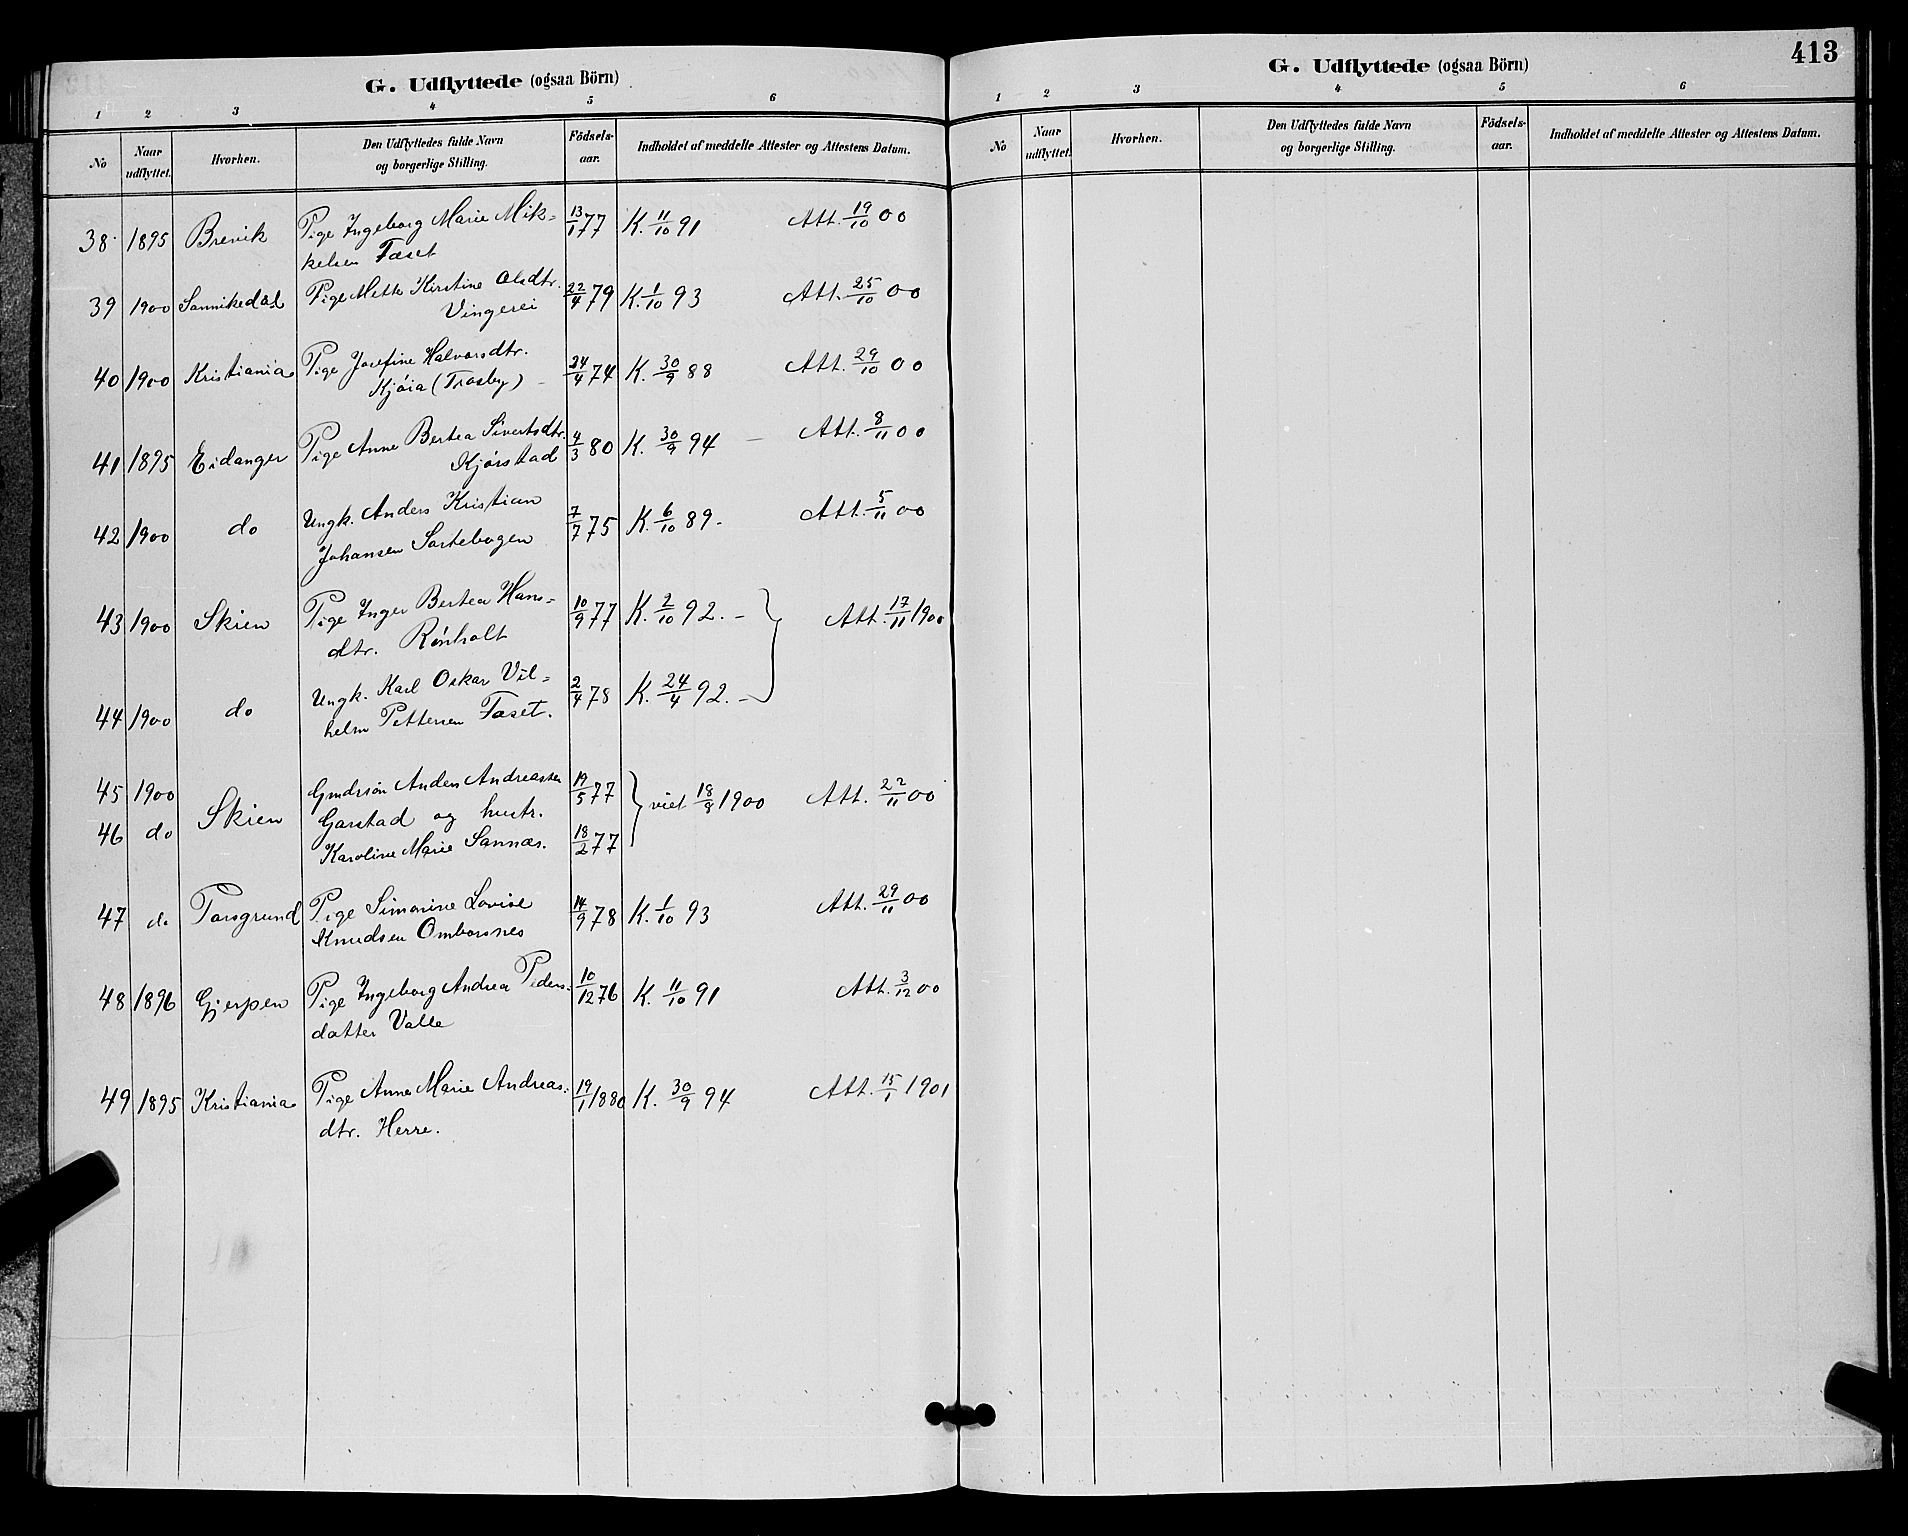 G. Udflyttede (ogsaa Börn)
1 2 3 4 5 6
No Naar udflyttet. Hvorhen. Den Udflyttedes fulde Navn og borgerlige Stilling. Födsels-aar. Indholdet af meddelte Attester og Attestens Datum.
38 1895 Brevik Pige Ingeborg Marie Mik= 13/1 77 K. 11/10 91 Att. 19/10 00
kelsen Faset
39 1900 Sannikedal Pige Mette Kirstine Olsdtr. 22/4 79 K. 1/10 93 Att. 25/10 00
Vingerei
40 1900 Kristiania Pige Josefine Halvorsdtr. 24/4 74 K. 30/9 88 Att. 29/10 00
Kjøia (Trosby) –
41 1895 Eidanger Pige Anne Bertea Sivertsdtr. 4/3 80 K. 30/9 94 – Att. 8/11 00
Kjørstad
42 1900 do Ungk. Anders Kristian 7/7 75 K. 6/10 89. Att. 5/11 00
Johansen Sortebogen
43 1900 Skien Pige Inger Bertea Hans= 10/9 77 K. 2/10 92. – Att. 17/11 1900
dtr. Rønholt
44 1900 do Ungk. Karl Oskar Vil= 2/4 78 K. 24/4 92. –
helm Pettersen Faset.
45 1900 Skien Anders Andreassen 19/5 77 viet 18/8 1900 Att. 22/11 00
Garstad og hustr.
46 do Karoline Marie Sannæs. 18/2 77
47 do Porsgrund Pige Simonine Lovise 14/9 78 K. 1/10 93 Att. 29/11 00
Knudsen Omborsnes
48 1896 Gjerpen Pige Ingeborg Andrea Peders= 10/12 76 K. 11/10 91 Att. 3/12 00
datter Valle
49 1895 Kristiania Pige Anne Marie Andreas= 19/1 1880 K. 30/9 94 Att. 15/1 1901
dtr. Herre.
413
G. Udflyttede (ogsaa Börn)
1 2 3 4 5 6
No Naar udflyttet. Hvorhen. Den Udflyttedes fulde Navn og borgerlige Stilling. Födsels-aar. Indholdet af meddelte Attester og Attestens Datum.